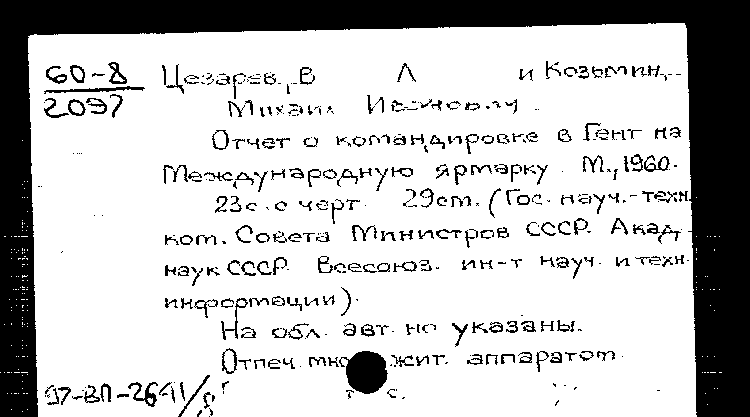 60-8 Цезарев, В Л и Козьмин,
2097 Михаил Иванович.
Отчет о командировке в Гент на
Международную ярмарку. М., 1960.
23с. с черт. 29cm. (Гос. науч.-техн.
ком. Совета Министров СССР. Акад.
наук СССР. Всесоюз. ин-т науч. и техн.
информации).
На обл. авт. не указаны.
Отпеч. множит. аппаратом
97-ВП-2641/8